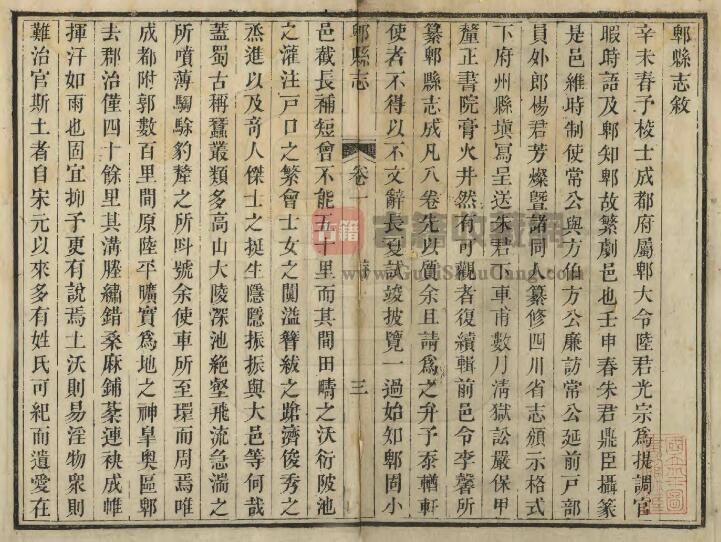 郫縣志敘
辛未春予校士成都府屬郫大令陸君光宗為提調官
暇時語及郫知郫故繁劇邑也壬申春朱君鼎臣攝篆
是邑維時制使常公與方伯方公廉訪常公延前戶部
員外郎楊君芳燦暨諸同人纂修四川省志頒示格式
下府州縣塡寫呈送朱君下車甫數月淸獄訟嚴保甲
釐正書院膏火井然有可觀者復續輯前邑令李馨所
纂郫縣志成凡八卷先以質余且請為之弁予忝輶軒
使者不得以不文辭長夏試竣披覽一過始知郫固小
郫縣志
卷一
三
邑截長補短曾不能五十里而其間田疇之沃衍陂池
之灌注戸口之繁會士女之闐溢簪紱之蹌濟俊秀之
烝進以及竒人傑士之挺生隱隱振振與大邑等何哉
蓋蜀古稱蠶叢類多高山大陵深池絶壑飛流急湍之
所噴薄騶駼豹犛之所㕰號余使車所至環而周焉唯
成都附郭數百里間原陸平曠實為地之神皐奧區郫
去郡治僅四十餘里其溝塍繡錯桑麻鋪棻連袂成帷
揮汗如雨也固宜抑予更有說焉土沃則易淫物衆則
難治官斯土者自宋元以來多有姓氏可紀而遺愛在
www.GuJiShuCang.com